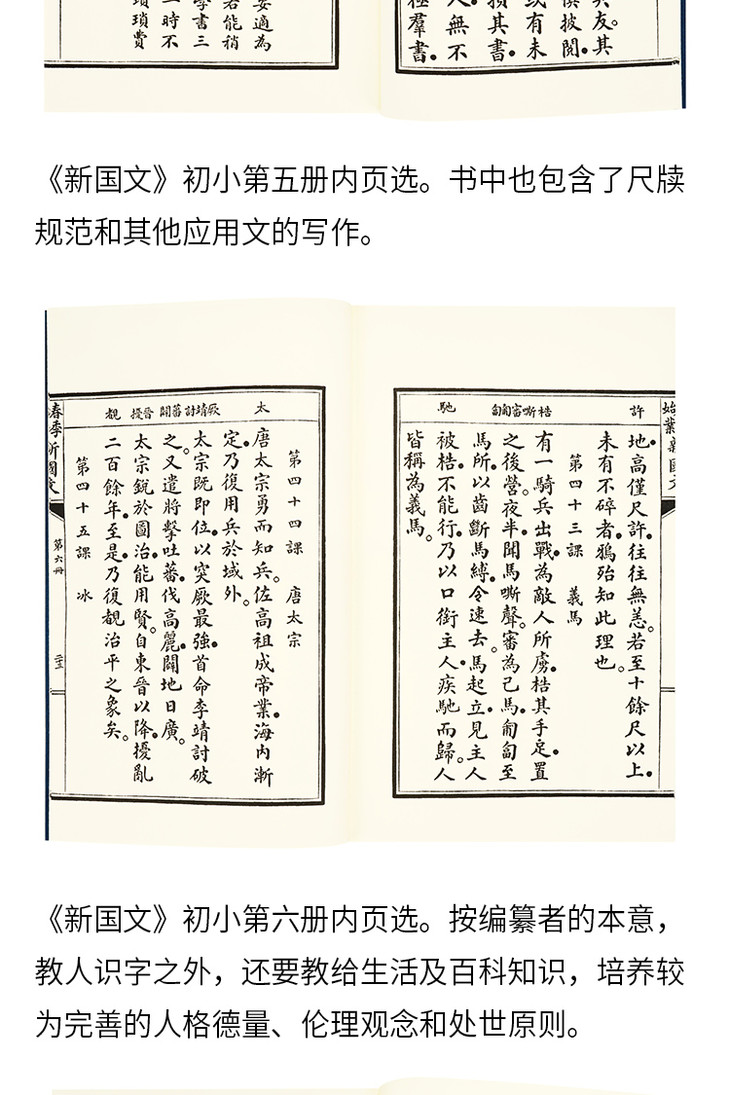 其友。其
披閱。
或有未
損其書。
人無不
極羣書。
妥適為
若能稍
學書三
一時不
瑣瑣費
《新国文》初小第五册内页选。书中也包含了尺牍
规范和其他应用文的写作。
許
梏嘶審匍匐
馳
地。高僅尺許。往往無恙。若至十餘尺以上。
未有不碎者。鴉殆知此理也。
第四十三課 義馬
有一騎兵出戰。為敵人所虜。梏其手足。置
之後營。夜半。聞馬嘶聲。審為己馬。匍匐至
馬所。以齒斷馬縛。令速去。馬起立。見主人
被梏。不能行。乃以口銜主人。疾馳而歸。人
皆稱為義馬。
太
厥靖討蕃闢
晉擾
覩
第四十四課 唐太宗
唐太宗勇而知兵。佐高祖成帝業。海內漸
定。乃復用兵於域外。
太宗既即位。以突厥最強。首命李靖討破
之。又遣將擊吐蕃。伐高麗。闢地日廣。
太宗銳於圖治。能用賢。自東晉以降。擾亂
二百餘年。至是。乃復覩治平之象矣。
第四十五課 冰
春季新國文
第六冊
《新国文》初小第六册内页选。按编纂者的本意，
教人识字之外，还要教给生活及百科知识，培养较
为完善的人格德量、伦理观念和处世原则。